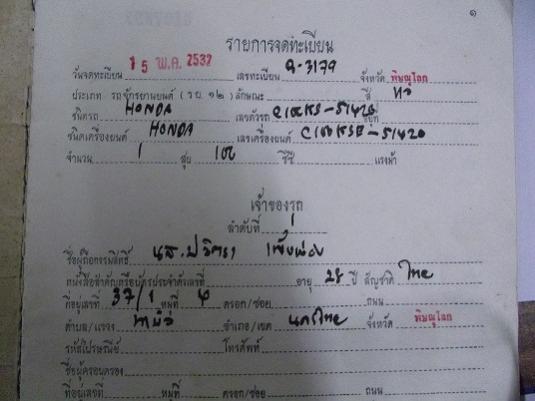 ๑
รายการจดทะเบียน
วันจดทะเบียน 15 พ.ค. 2532 เลขทะเบียน -3179 จังหวัด พิษณุโลก
ประเภท รถจักรยานยนต์ (รย.๑๒) ลักษณะ สี
ชนิดรถ HONDA เลขตัวรถ อยู่ที่
ชนิดเครื่องยนต์ HONDA เลขเครื่องยนต์
จำนวน 1 สูบ 100 ซีซี แรงม้า
เจ้าของรถ
ลำดับที่
ชื่อผู้ถือกรรมสิทธิ์ นส.
หนังสือสำคัญหรือบัตรประจำตัวเลขที่ อายุ 28 ปี สัญชาติ ไทย
ที่อยู่เลขที่ 37/1 หมู่ที่ ตรอก/ซอย ถนน
ตำบล/แขวง อำเภอ/เขต นครไทย จังหวัด พิษณุโลก
รหัสไปรษณีย์ โทรศัพท์
ชื่อผู้ครอบครอง
ที่อยู่เลขที่ หมู่ที่ ตรอก/ซอย ถนน